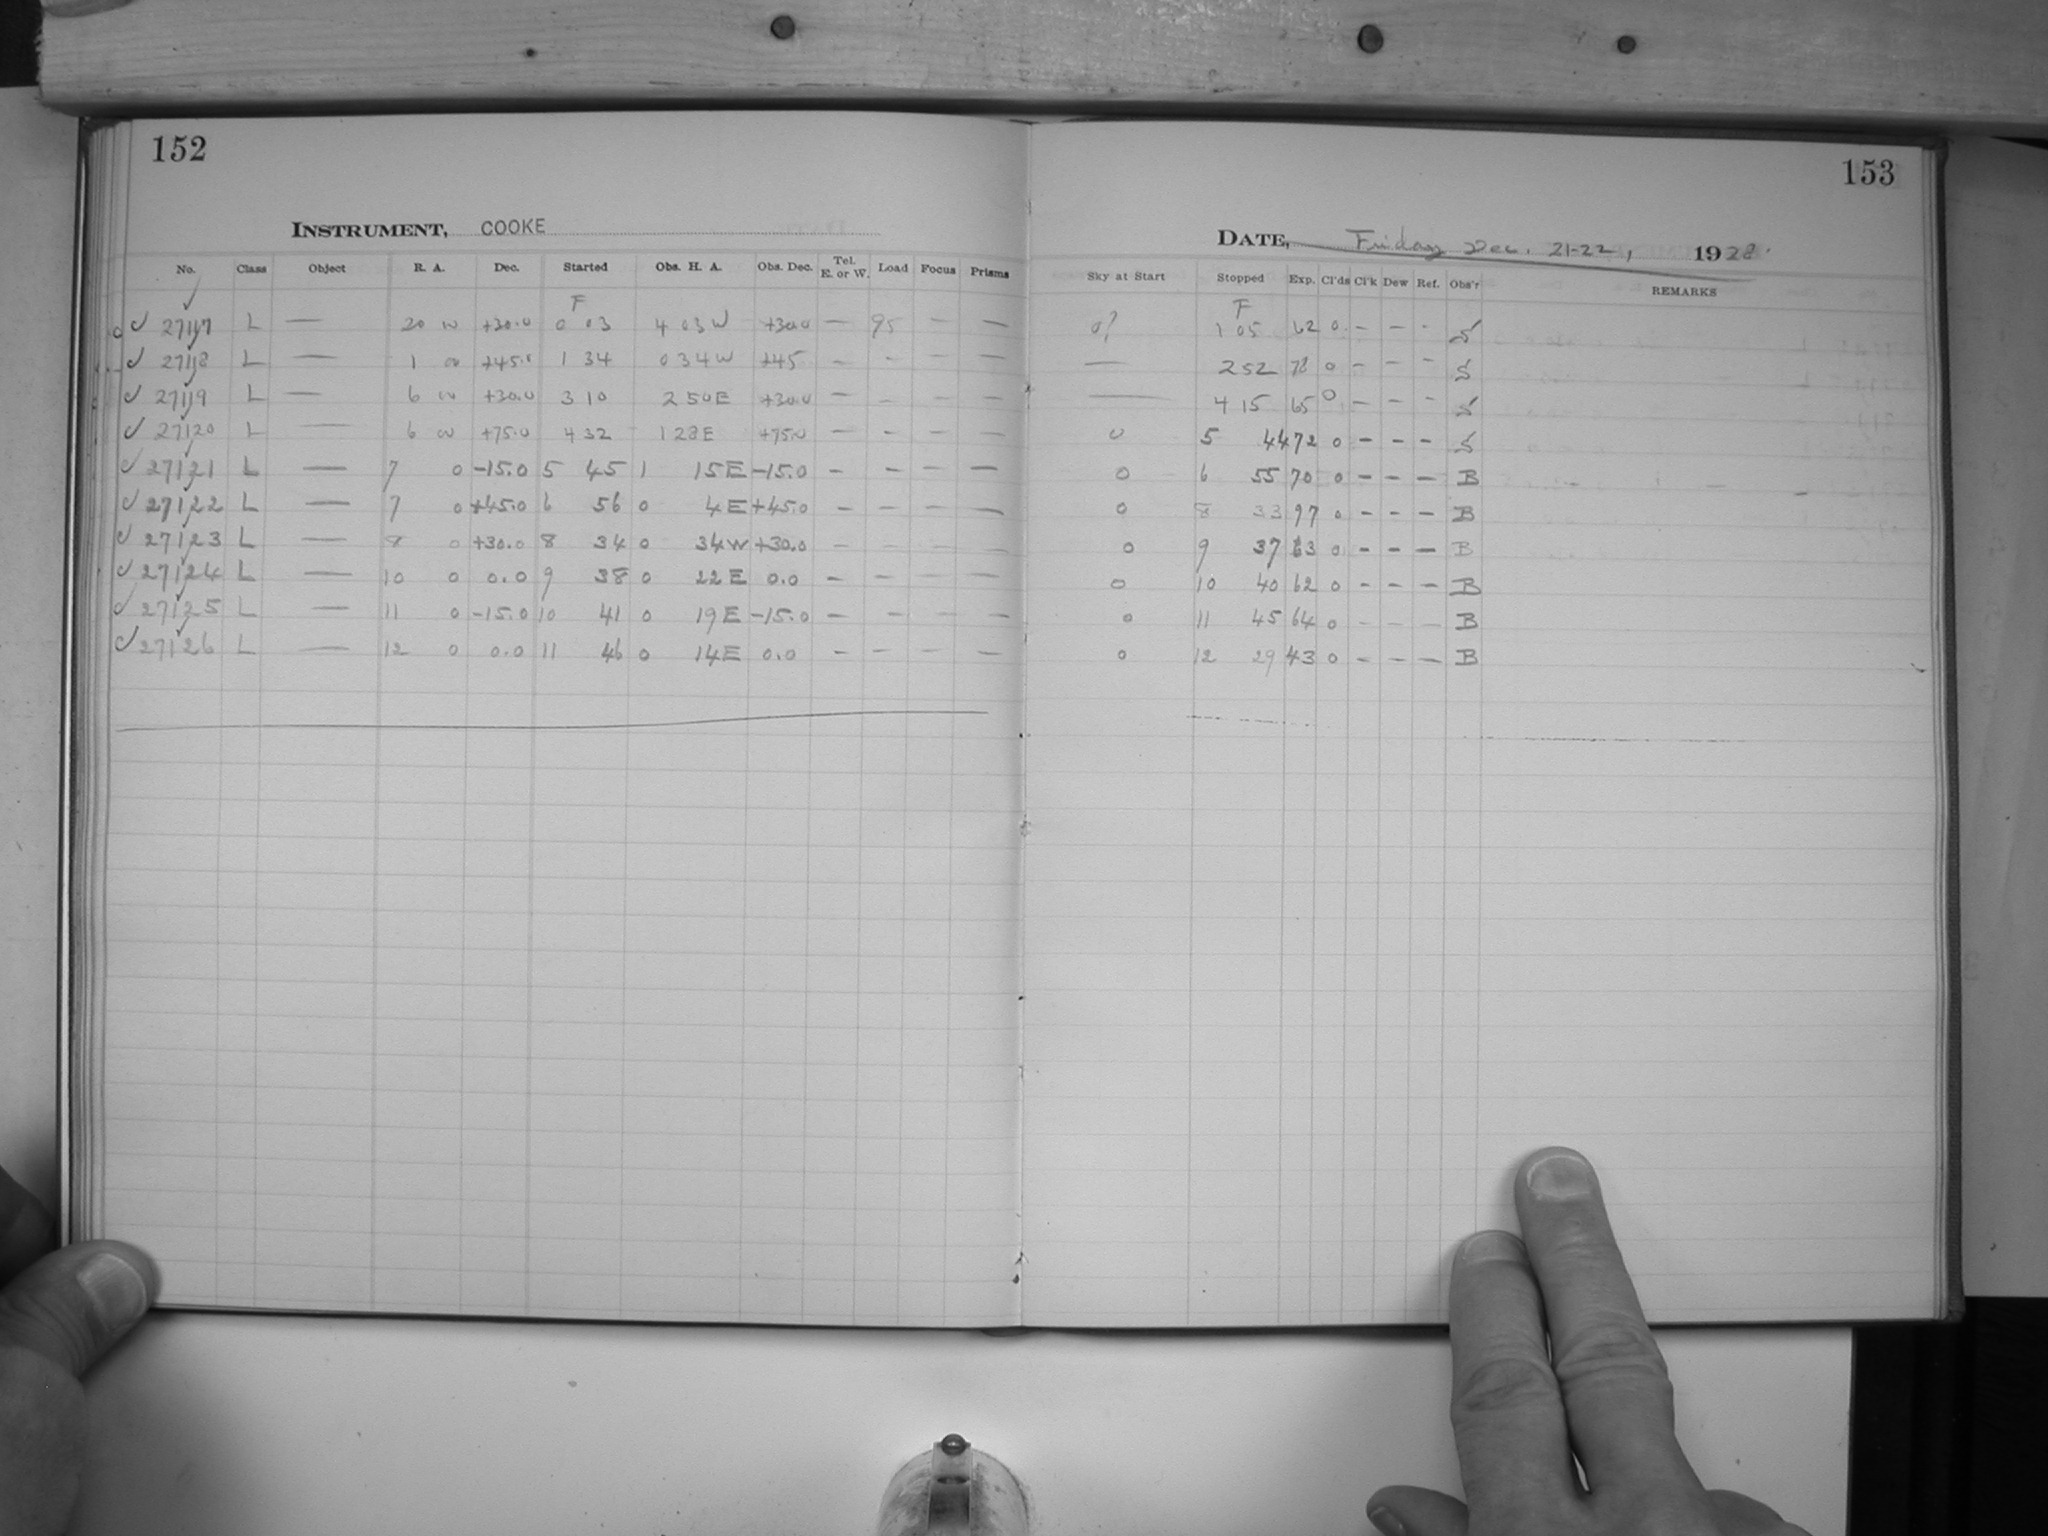 152
INSTRUMENT, COOKE
No. Class Object R. A. Dec. Started Obs. H. A. Obs. Dec. Tel. E. or W. Load Focus Prisms
F
27117 L — 20 00 +30.0 0 03 4 03W +30.0 — 95 — —
27118 L — 1 00 +45.0 1 34 0 34W +45 — — — —
27119 L — 6 00 +30.0 3 10 2 50E +30.0 — — — —
27120 L — 6 00 +75.0 4 32 1 28E +75.0 — — — —
27121 L — 7 0 -15.0 5 45 1 15E -15.0 — — — —
27122 L — 7 0 +45.0 6 56 0 4E +45.0 — — — —
27123 L — 8 0 +30.0 8 34 0 34W +30.0 — — — —
27124 L — 10 0 0.0 9 38 0 22E 0.0 — — — —
27125 L — 11 0 -15.0 10 41 0 19E -15.0 — — — —
27126 L — 12 0 0.0 11 46 0 14E 0.0 — — — —
153
DATE, Friday Dec. 21-22, 1928.
Sky at Start Stopped Exp. Cl'ds Cl'k Dew Ref. Obs'r REMARKS
F
0? 1 05 62 0 — — - S
— 2 52 78 0 — — - S
— 4 15 65 0 — — - S
0 5 44 72 0 — — — S
0 6 55 70 0 — — — B
0 8 33 97 0 — — — B
0 9 37 63 0 — — — B
0 10 40 62 0 — — — B
0 11 45 64 0 — — — B
0 12 29 43 0 — — — B